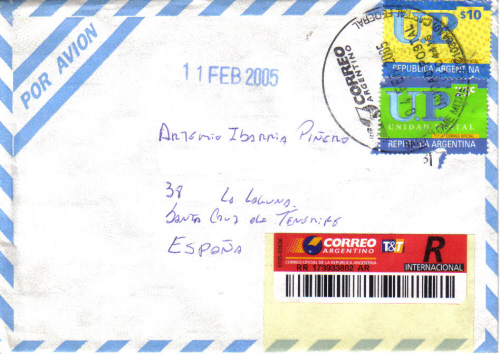 POR AVION
11 FEB 2005
CORREO
ARGENTINO
U.P
$10
REPUBLICA ARGENTINA
U.P
UNIDAD POSTAL
REPUBLICA ARGENTINA
Antonio Ibarria Piñero
38 La Laguna.
Santa Cruz de Tenerife
España
CORREO
ARGENTINO
T&T
R
CORREO OFICIAL DE LA REPUBLICA ARGENTINA
INTERNACIONAL